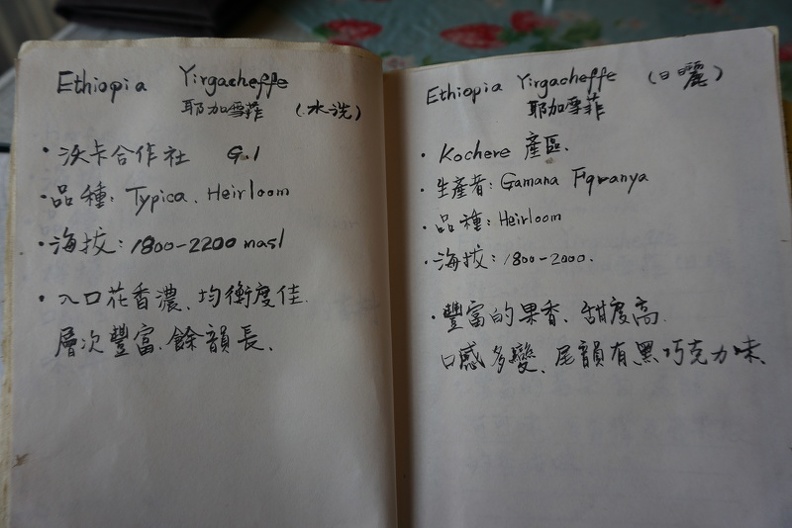 Ethiopia Yirgacheffe
耶加雪菲 (水洗)
• 沃卡合作社 G.1
• 品種: Typica、Heirloom
• 海拔: 1800-2200 masl
• 入口花香濃、均衡度佳.
層次豐富.餘韻長、
Ethiopia Yirgacheffe (日曬)
耶加雪菲
• Kochere 產區.
• 生產者: Gamana
• 品種: Heirloom
• 海拔: 1800-2000.
• 豐富的果香、甜度高.
口感多變、尾韻有黑巧克力味、